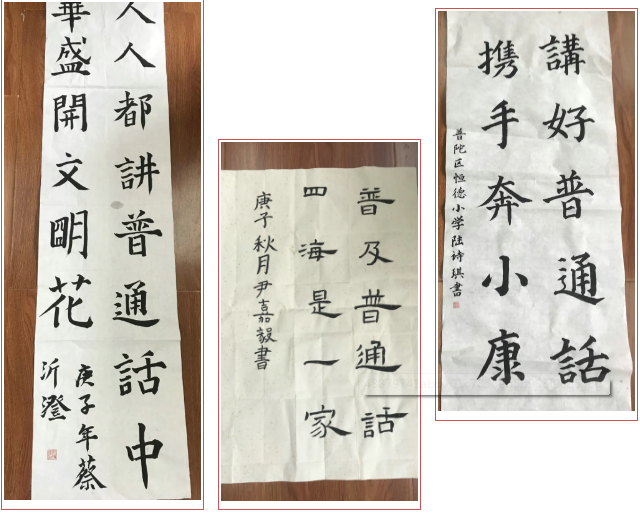 人人都讲普通話中
華盛開文明花
庚子年蔡
沂澄
普及普通話
四海是一家
庚子秋月尹嘉毅書
講好普通話
携手奔小康
普陀区恒德小学陆诗琪書